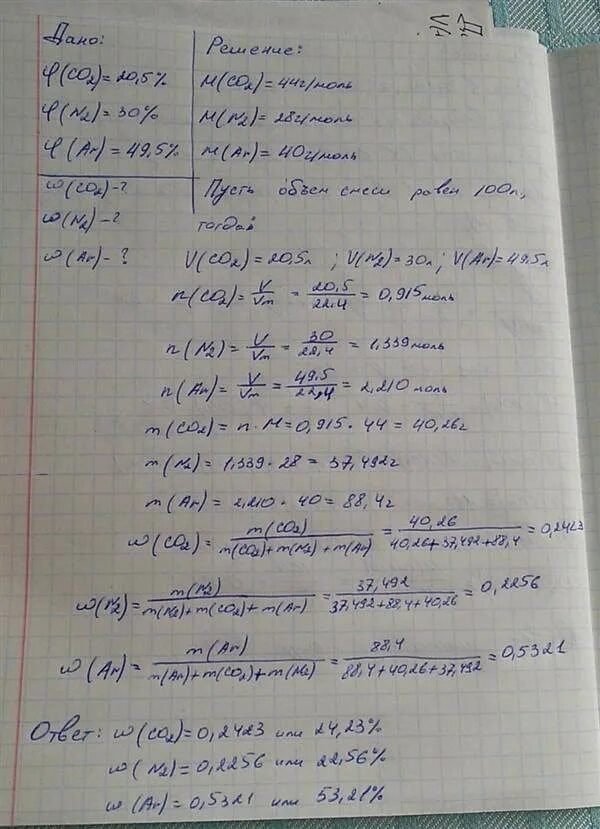 Дано:
φ(CO₂)=20,5%
φ(N₂)=30%
φ(Ar)=49,5%
ω(CO₂)-?
ω(N₂)-?
ω(Ar)-?
Решение:
M(CO₂)=44г/моль
M(N₂)=28г/моль
M(Ar)=40г/моль
Пусть объем смеси равен 100л,
тогда
V(CO₂)=20,5л ; V(N₂)=30л; V(Ar)=49,5л
n(CO₂)=V/Vm=20,5/22,4=0,915моль
n(N₂)=V/Vm=30/22,4=1,339моль
n(Ar)=V/Vm=49,5/22,4=2,210 моль
m(CO₂)=n·M=0,915·44=40,26г
m(N₂)=1,339·28=37,492г
m(Ar)=2,210·40=88,4г
ω(CO₂)=m(CO₂)/m(CO₂)+m(N₂)+m(Ar)=40,26/40,26+37,492+88,4=0,2423
ω(N₂)=m(N₂)/m(N₂)+m(CO₂)+m(Ar)=37,492/37,492+88,4+40,26=0,2256
ω(Ar)=m(Ar)/m(Ar)+m(CO₂)+m(N₂)=88,4/88,4+40,26+37,492=0,5321
Ответ: ω(CO₂)=0,2423 или 24,23%
ω(N₂)=0,2256 или 22,56%
ω(Ar)=0,5321 или 53,21%